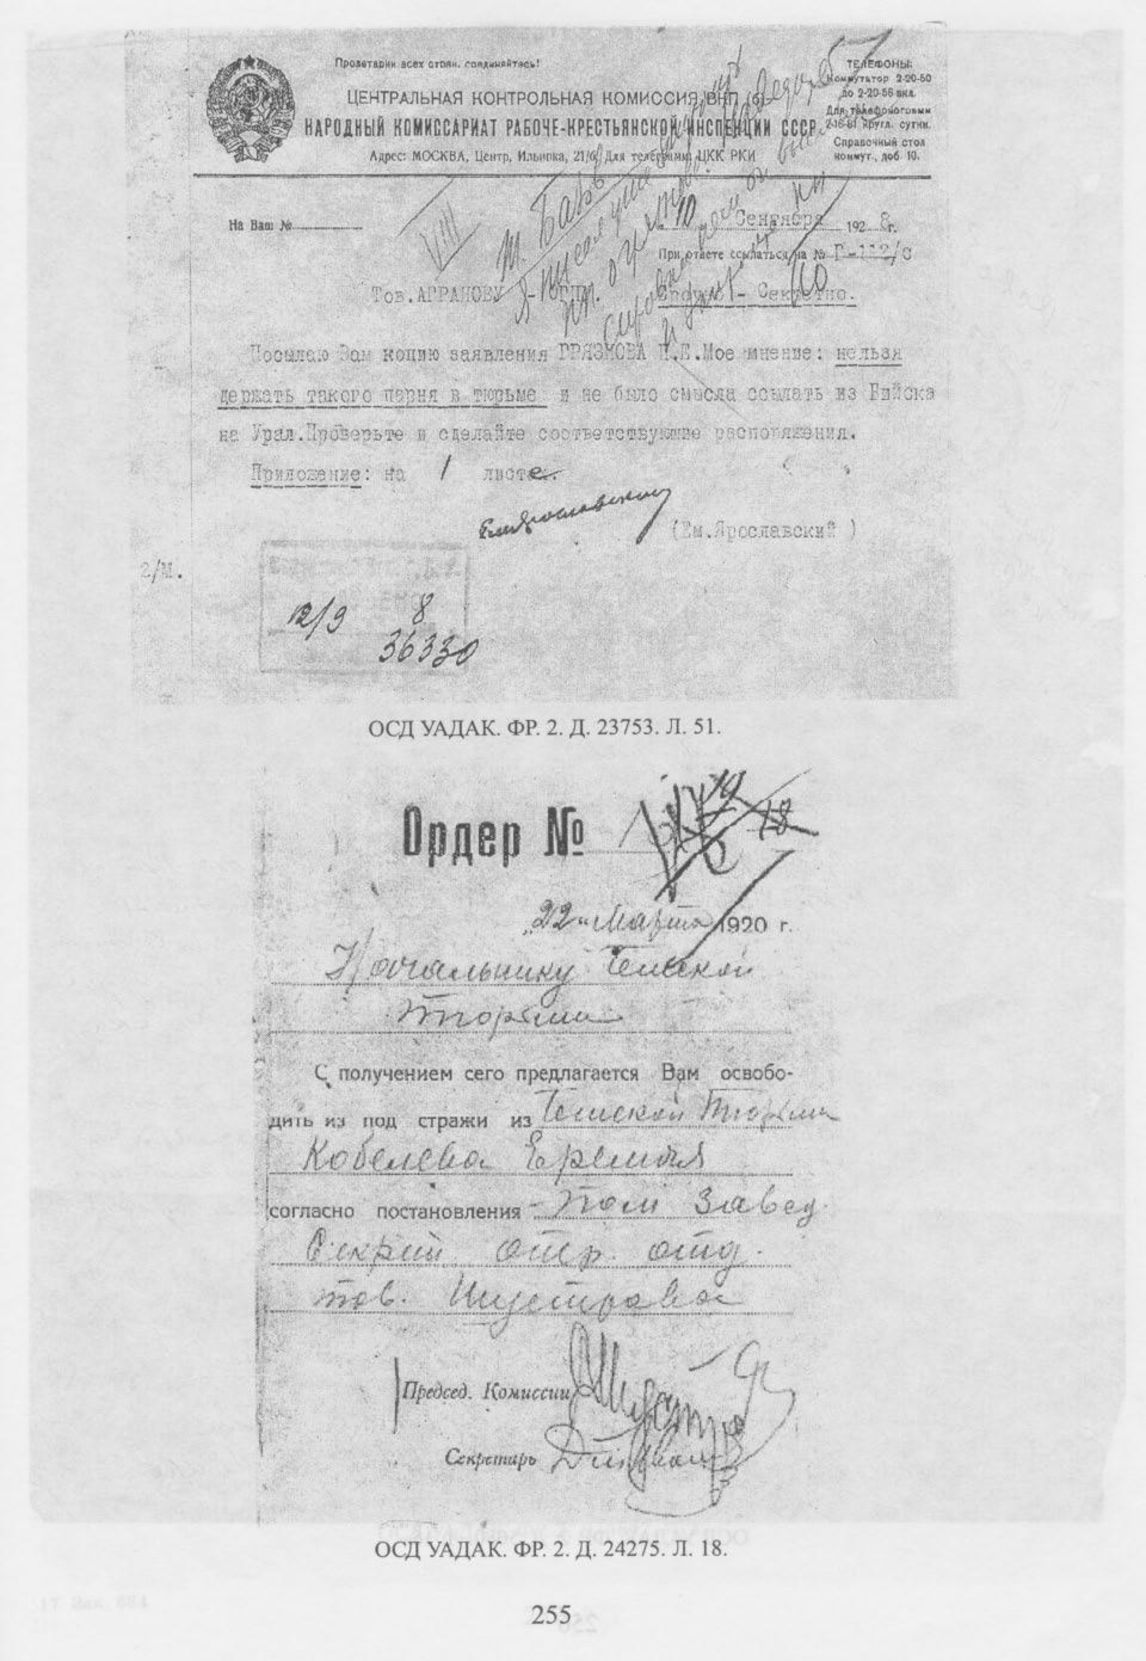 Пролетарии всех стран, соединяйтесь!
ЦЕНТРАЛЬНАЯ КОНТРОЛЬНАЯ КОМИССИЯ ВКП (б)
НАРОДНЫЙ КОМИССАРИАТ РАБОЧЕ-КРЕСТЬЯНСКОЙ ИНСПЕКЦИИ СССР
Адрес: МОСКВА, Центр, Ильинка, 21/6 Для телеграмм: ЦКК РКИ
ТЕЛЕФОНЫ:
Коммутатор 2-20-50
до 2-20-56 вкл.
Для телефонограмм
2-16-61 кругл. сутки.
Справочный стол
коммут., доб 10.
На Ваш №
VIII
10 Сентября 1928 г.
При ответе ссылаться на № Г-112/с
Тов. АГРАНОВУ - ОГПУ
Срочно - Секретно.
Посылаю Вам копию заявления ГРЯЗНОВА П.Е. Мое мнение: нельзя
держать такого парня в тюрьме и не было смысла ссылать из Бийска
на Урал. Проверьте и сделайте соответствующие распоряжения.
Приложение: на 1 листе.
(Ем.Ярославский )
2/М.
12/9 8
36330
ОСД УАДАК. ФР. 2. Д. 23753. Л. 51.
Ордер №
19
18
„22" Марта 1920 г.
Начальнику
Тюрьмы
С получением сего предлагается Вам освобо-
дить из под стражи из Тюрьмы
Кобелева Еремея
согласно постановления Пом Завед.
Секрет. опер. отд.
тов. Шустрова
Председ. Комиссии
Секретарь
ОСД УАДАК. ФР. 2. Д. 24275. Л. 18.
255